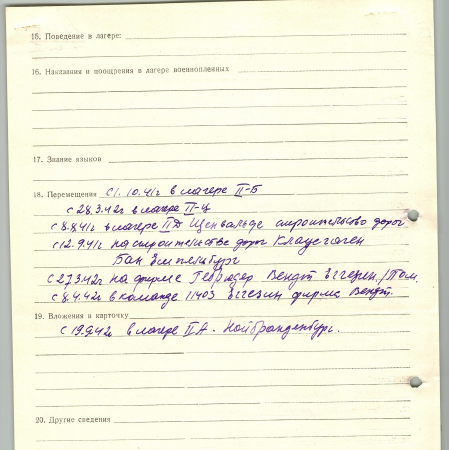 15. Поведение в лагере:
16. Наказания и поощрения в лагере военнопленных
17. Знание языков
18. Перемещения с 1.10.41г в лагере II-Б
с 28.3.42г в лагере II-Ц
с 8.8.41г в лагере II Д Щенвальде строительство дорог
с 12.9.41г на строительстве дорог Клаусгаген
Бан Земпельбург
с 27.3.42г на фирме Гебрюдер Вендт Эггезин /Пом.
с 8.4.42г в команде 11403 Эггезин фирма Вендт.
19. Вложения в карточку
с 19.9.42г в лагере II А - Нойбранденбург.
20. Другие сведения